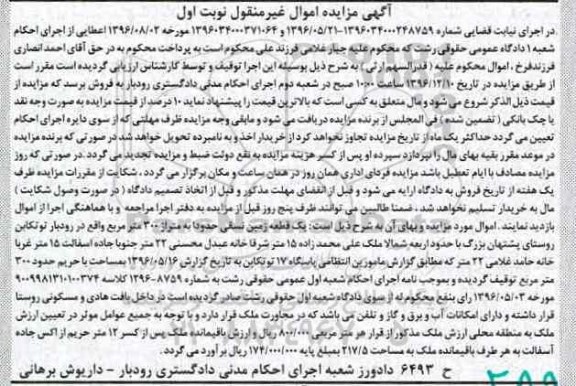 آگهی مزایده اموال غیرمنقول نوبت اول
در اجرای نیابت قضایی شماره ۱۳۹۶۰۳۴۰۰۰۲۴۸۷۵۹-۱۳۹۶/۰۵/۲۱ و ۱۳۹۶۰۳۴۰۰۰۳۷۱۰۶۴ مورخه ۱۳۹۶/۰۸/۰۲ اعطایی از اجرای احکام
شعبه ۱ دادگاه عمومی حقوقی رشت که محکوم علیه جبار غلامی فرزند علی محکوم است به پرداخت محکوم به در حق آقای احمد انصاری
فرزند فرخ ، اموال محکوم علیه ( قدرالسهم ارثی ) به شرح ذیل بوسیله این اجرا توقیف و توسط کارشناس ارزیابی گردیده است مقرر است
از طریق مزایده در تاریخ ۱۳۹۶/۱۲/۱۰ ساعت ۱۰:۰۰ صبح در شعبه دوم اجرای احکام مدنی دادگستری رودبار به فروش برسد که مزایده از
قیمت ذیل الذکر شروع می شود و مال متعلق به کسی است که بالاترین قیمت را پیشنهاد نماید ۱۰ درصد از قیمت مزایده به صورت وجه نقد
یا چک بانکی ( تضمین شده ) فی المجلس از برنده مزایده دریافت می شود و مابقی وجه مزایده ظرف مهلتی که از سوی دایره اجرای احکام
تعیین می گردد حداکثر یک ماه از تاریخ مزایده تجاوز نخواهد کرد از خریدار اخذ و به نامبرده تحویل خواهد شد در صورتی که برنده مزایده
در موعد مقرر بقیه بهای مال را نپردازد سپرده او پس از کسر هزینه مزایده به نفع دولت ضبط و مزایده تجدید می گردد . در صورتی که روز
مزایده مصادف با ایام تعطیل باشد مزایده فردای اداری همان روز در همان ساعت و مکان برگزار می گردد ، شکایت از مقررات مزایده ظرف
یک هفته از تاریخ فروش به دادگاه ارایه می شود و قبل از انقضای مهلت مذکور و قبل از اتخاذ تصمیم دادگاه ( در صورت وصول شکایت )
مال به خریدار تسلیم نخواهد شد ، ضمنا طالبین می توانند ظرف پنج روز قبل از مزایده به دفتر اجرا مراجعه و با هماهنگی اجرا از اموال
بازدید نمایند . اموال مورد مزایده و بهای آن به شرح ذیل است : یک قطعه زمین نسقی حدودا به متراژ ۳۰۰ متر مربع واقع در رودبار توتکابن
روستای پشتهان بزرگ با حدود اربعه شمالا ملک علی محمد زاده ۱۵ متر شرقا خانه عبدل محسنی ۲۲ متر جنوبا جاده اسفالت ۱۵ متر غربا
خانه حامد غلامی ۲۲ متر که مطابق گزارش مامورین انتظامی پاسگاه ۱۷ توتکابن به تاریخ گزارش ۱۳۹۶/۰۵/۱۶ بمساحت با حریم حدود ۳۰۰
متر مربع توقیف گردیده و بموجب نامه اجرای احکام شعبه اول عمومی حقوقی رشت به شماره ۸۷۵۹-۱۲۹۶ کلاسه ۹۰۰۹۹۸۱۳۱۰۱۰۰۳۷۴
مورخه ۱۳۹۶/۰۵/۰۳ رای بنفع محکوم له از سوی دادگاه شعبه اول حقوقی رشت صادر گردیده است در داخل بافت هادی و مسکونی روستا
قرار داشته و دارای امکانات آب و برق و گاز و تلفن می باشد که در مجاورت ملک قرار دارد و با توجه به جمیع عوامل موثر در تعیین ارزش
ملک به منطقه محلی ارزش ملک مذکور از قرار هر متر مربعی ۸۰۰/۰۰۰ ریال و ارزش باقیمانده ملک پس از کسر ۱۲ متر حریم از اکس جاده
آسفالت به هر طرف باقیمانده ملک به مساحت ۲۱۷/۵ بمبلغ پایه ۱۷۴/۰۰۰/۰۰۰ ریال برآورد می گردد.
ح ۶۴۹۳ دادورز شعبه اجرای احکام مدنی دادگستری رودبار - داریوش برهانی
۲۹۹